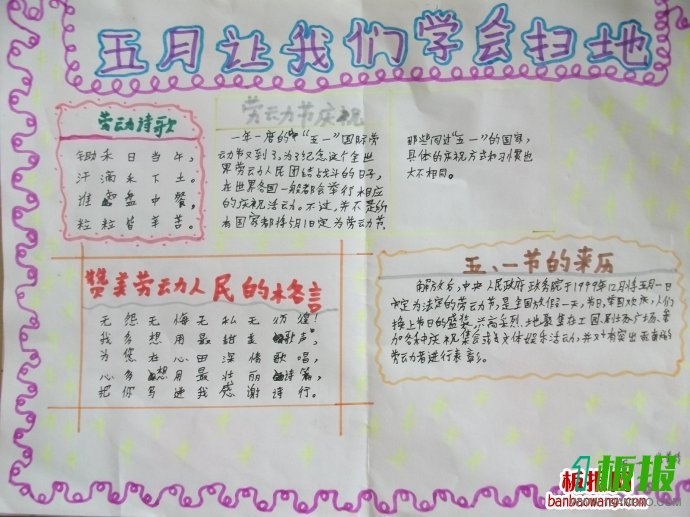 五月让我们学会扫地
劳动诗歌
锄禾日当午,
汗滴禾下土。
谁 盘中餐,
粒粒皆辛苦。
劳动节庆祝
一年一度的“五一”国际劳
动节又到了,为了纪念这个全世
界劳动人民团结战斗的日子,
在世界各国一般都会举行相应
的庆祝活动。不过,并不是所
有国家都将5月1日定为劳动节
那些同过“五一”的国家,
具体的庆祝方式和习惯也
大不相同。
赞美劳动人民的名言
无怨无悔无私无彷徨!
我多想用最甜美歌声,
为您在心田深情歌唱,
心多想用最壮丽诗篇,
把你写进我感谢诗行。
五、一节的来历
解放后,中央人民政府政务院于1949年12月将五月一日
定为法定的劳动节,是全国放假一天,节日,举国欢庆,人们
换上节日的盛装,兴高采烈地聚集在公园、剧院、广场,参
加各种庆祝集会或文体娱乐活动,并对有突出贡献的
劳动者进行表彰。
板报
banbaowang.com